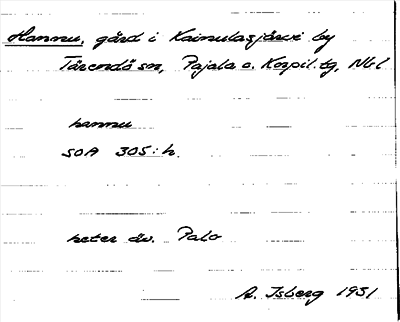 Hannu, gård i Kainulasjärvi by
Tärendö sn, Pajala o. Korpil. tg, Nbl
hannu
SOA 305:h.
heter äv. Palo
A. Isberg 1931